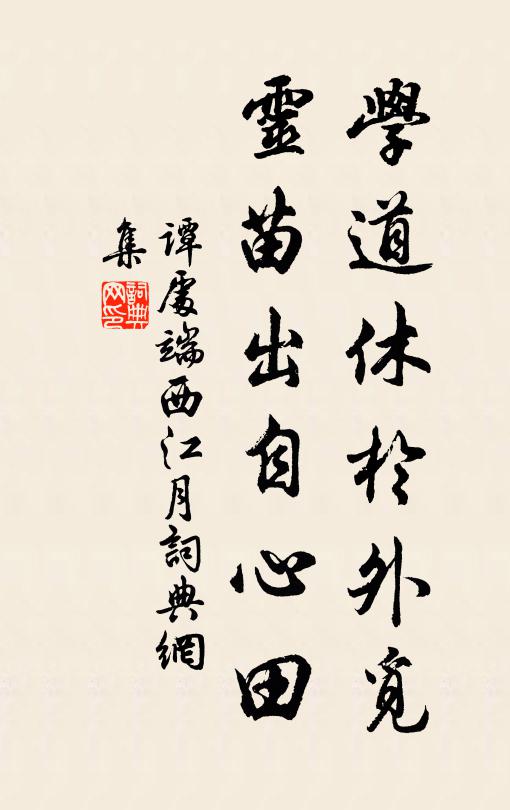 學道休於外覓
靈苗出自心田
谭處端西江月詞典網
集
詞典
网印